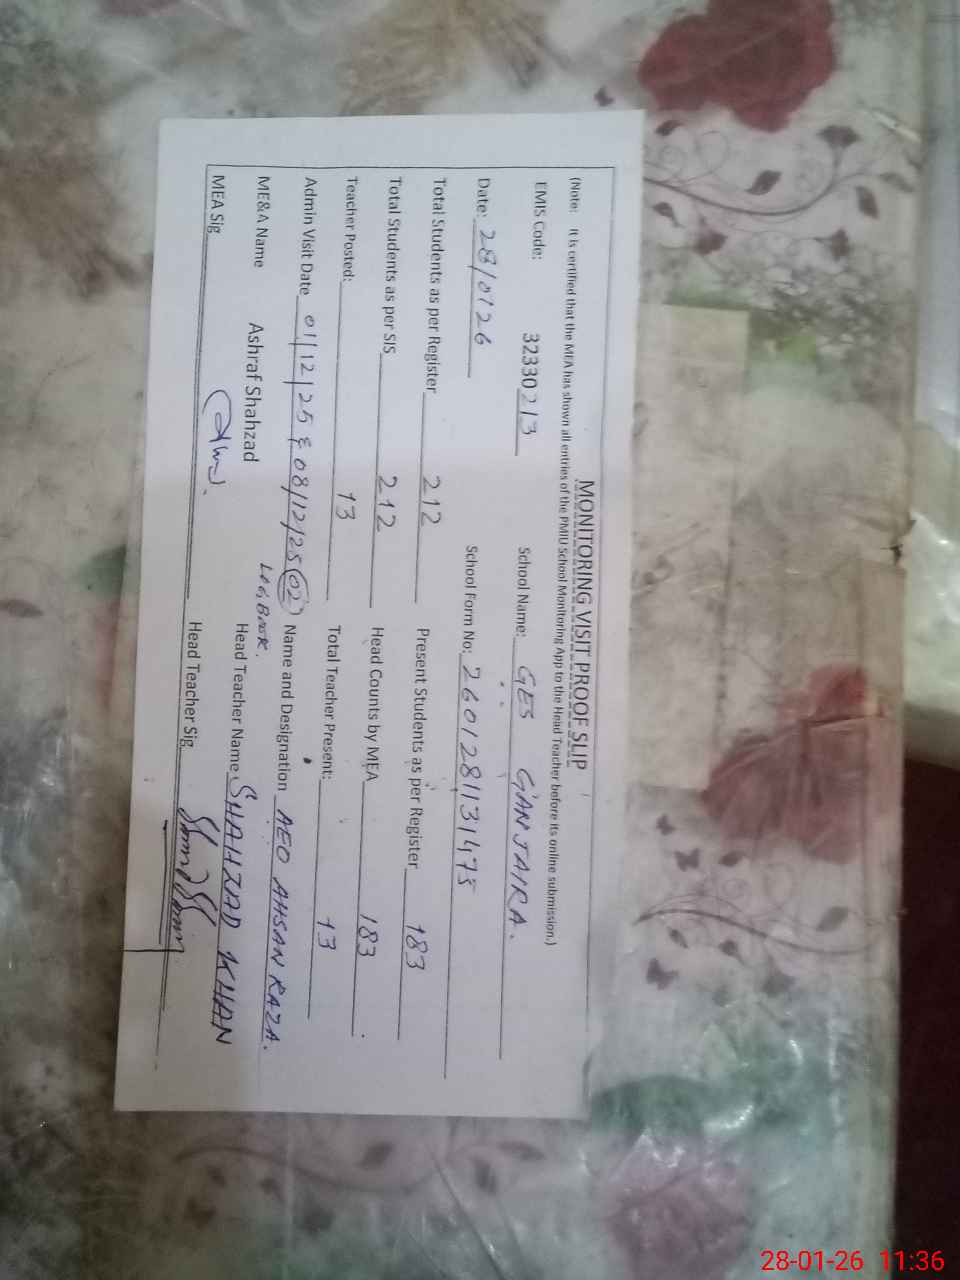 MONITORING VISIT PROOF SLIP
(Note: It is certified that the MEA has shown all entries of the PMIU School Monitoring App to the Head Teacher before its online submission.)
EMIS Code: 32330213 School Name: GES GANJAIRA.
Date: 28/01/26 School Form No: 2601281131475
Total Students as per Register 212 Present Students as per Register 183
Total Students as per SIS 212 Head Counts by MEA 183
Teacher Posted: 13 Total Teacher Present: 13
Admin Visit Date 01/12/25 & 08/12/25 (02) Name and Designation AEO AHSAN RAZA.
LOG BOOK.
ME&A Name Ashraf Shahzad Head Teacher Name SHAHZAD KHAN
MEA Sig Head Teacher Sig
28-01-26 11:36